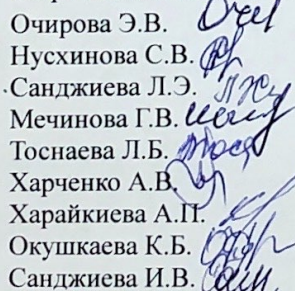 Очирова Э.В.
Нусхинова С.В.
Санджиева Л.Э.
Мечинова Г.В.
Тоснаева Л.Б.
Харченко А.В.
Харайкиева А.П.
Окушкаева К.Б.
Санджиева И.В.